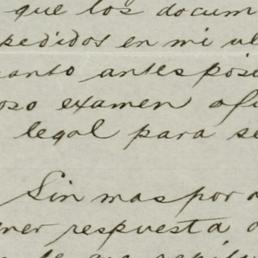 que los docum
pedidos en mi ul
anto antes posi
oso examen ofi
legal para se
Sin mas por a
ner respuesta a